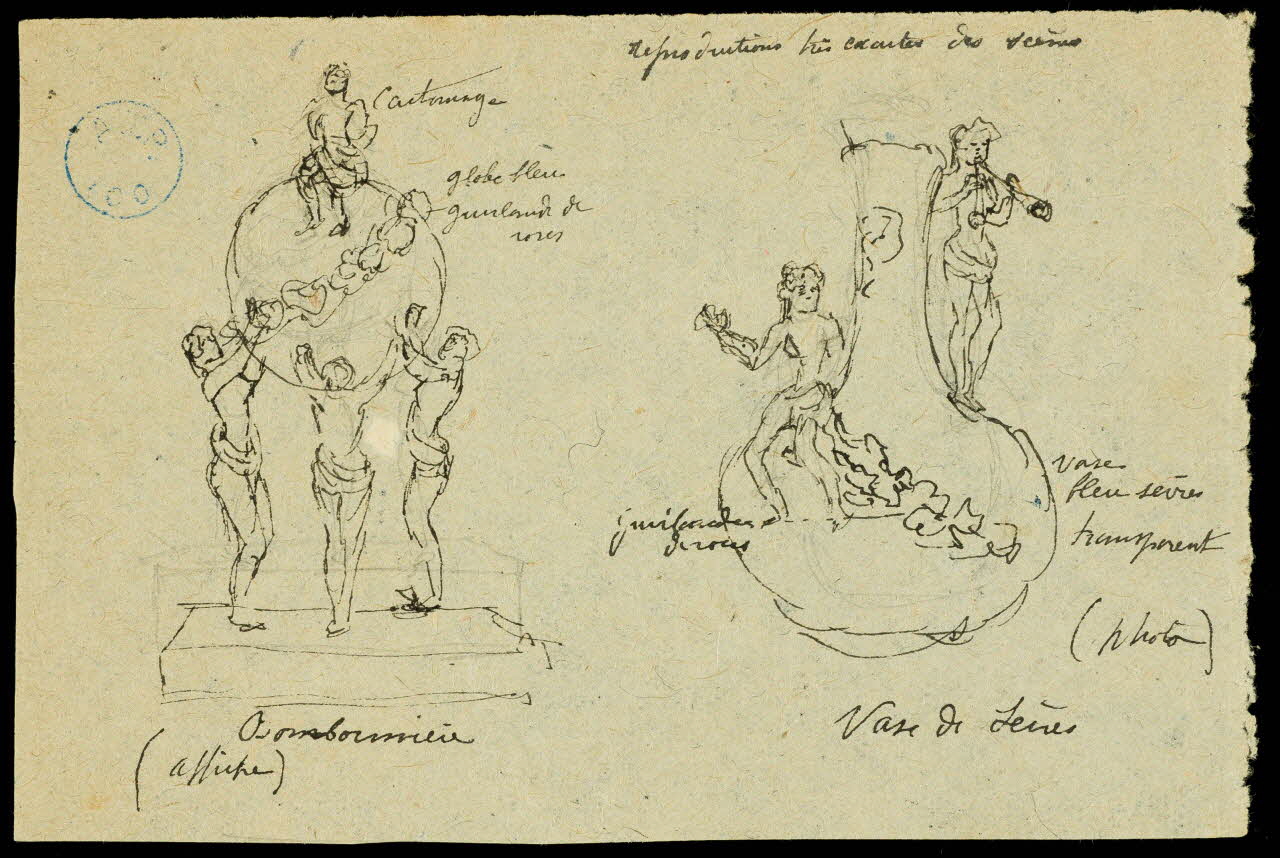 Reproductions très exactes des scènes
Cartonnage
globe bleu
guirlande de
roses
guirlandes
de roses
vase
bleu sèvres
transparent
(photo)
Bombonnière
(affiche)
Vase de Sèvres
100